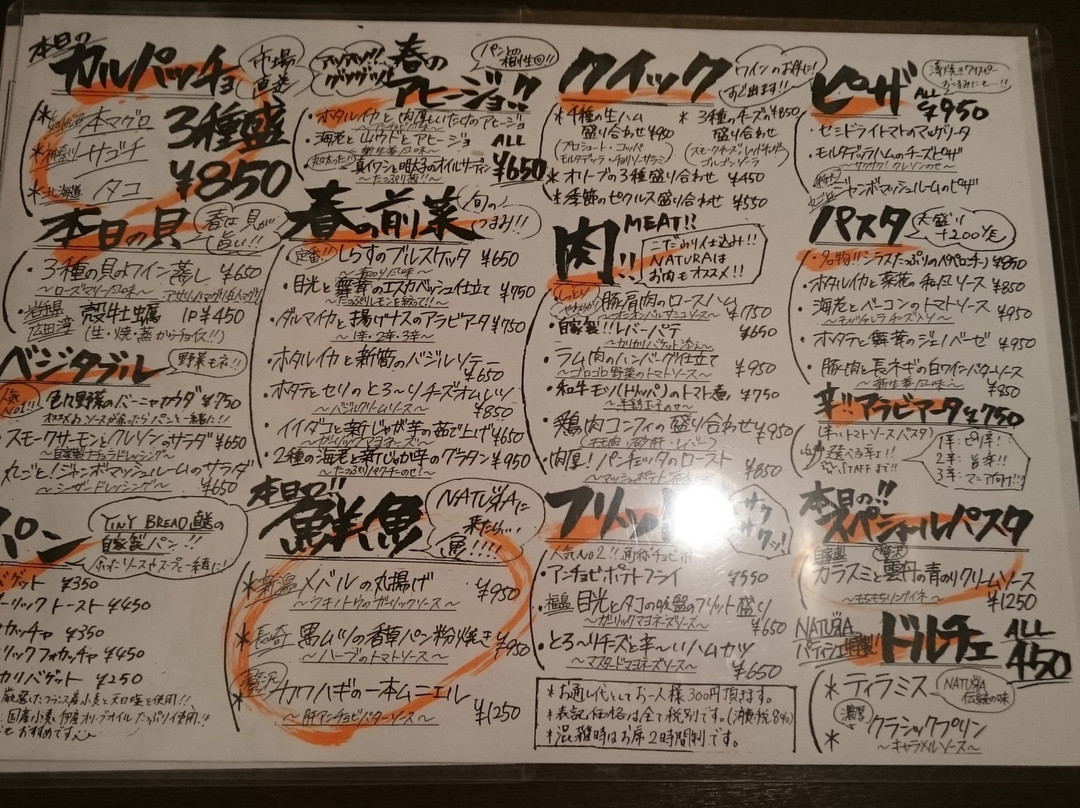 本日の
カルパッチョ
市場
直送
本マグロ
*神奈川 サゴチ
*北海道 タコ
3種盛
¥850
春の
アヒージョ!!
パンとの
相性◎!!
・ホタルイカと肉厚しいたけのアヒージョ
・海老と山ウドとアヒージョ
真イワシと明太子のオイルサーディン
ALL
¥650
クイック
ワインのお供に!
すぐ出ます!!
*4種の生ハム
盛り合わせ ¥980
(プロシュート・コッパ
モルタデッラ・チョリソーサラミ)
*3種のチーズの ¥850
盛り合わせ
ゴルゴンゾーラ
*オリーブの3種盛り合わせ ¥450
*季節のピクルス盛り合わせ ¥550
ピザ
ALL
¥950
・セミドライトマトのマルゲリータ
・モルタデッラハムのチーズピザ
ジャンボマッシュルームのピザ
本日の貝
春は貝が
旨い!!
・3種の貝のワイン蒸し ¥650
〜ローズマリー風味〜
・岩手県
広田湾
殻牡蠣 1P ¥450
(生・焼・蒸からチョイス!!)
春の前菜
旬の
つまみ!!
定番!! しらすのブルスケッタ ¥650
・目光と舞茸のエスカベッシュ仕立て ¥750
〜たっぷりレモンを絞って!!〜
・ダルマイカと揚げナスのアラビアータ ¥750
〜1辛・2辛・3辛〜
・ホタルイカと新筍のバジルソテー
¥650
・ホタテとセリのとろ〜りチーズオムレツ
〜バジルクリームソース〜 ¥850
・イイダコと新じゃが芋の茹で上げ ¥650
〜ガーリックマヨネーズ〜
・2種の海老と新じゃが芋のグラタン ¥950
〜たっぷりパクチーのせ!〜
肉!!
MEAT!!
こだわり仕込み!!
NATURAは
お肉もオススメ!!
豚肩肉のロースハム
¥750
・自家製!!レバーパテ ¥650
〜カリカリバケット添え〜
・ラム肉のハンバーグ仕立て
〜ゴロゴロ野菜のトマトソース〜 ¥950
・和牛モツ(トリッパ)のトマト煮 ¥750
〜半熟玉子のせ〜
・鶏肉コンフィの盛り合わせ ¥950
・肉厚!パンチェッタのロースト
¥850
パスタ
大盛!!
+200yen
・名物!!シラスたっぷりのペペロンチーノ ¥850
・ホタルイカと菜花の和風ソース ¥850
・海老とベーコンのトマトソース ¥950
・ホタテと舞茸のジェノベーゼ ¥950
・豚肉と長ネギの白ワインバターソース
¥850
辛!!アラビアータ ¥750
(辛いトマトソースパスタ)
1辛:ピリ辛!
2辛:旨辛!!
3辛:マニア向け!!!
ベジタブル
野菜モネ!!
人気
No1!! 色々野菜のバーニャカウダ ¥750
スモークサーモンとクレソンのサラダ ¥650
〜自家製ナチュラドレッシング〜
丸ごと!ジャンボマッシュルームのサラダ
〜シーザードレッシング〜 ¥650
パン
TiNY BREAD直送の
自家製パン!!
ゲット ¥350
ーリックトースト ¥450
カッチャ ¥350
リックフォカッチャ ¥450
カリバゲット ¥250
厳選したフランス産小麦と天日塩を使用!!
本日の!!
鮮魚
NATURAに
来たら…
魚!!!!
*新潟 メバルの丸揚げ ¥950
*長崎 黒ムツの香草パン粉焼き ¥950
〜ハーブのトマトソース〜
*贅沢 カワハギの一本ムニエル ¥1250
〜肝アンチョビバターソース〜
サクサクッ!
人気No2!!
・アンチョビポテトフライ ¥550
・福島 目光とタコの吸盤のフリット盛り
〜ガーリックマヨネーズソース〜 ¥650
・とろ〜りチーズと辛〜いハムカツ
〜マスタードマヨネーズソース〜 ¥650
*お通し代としてお一人様300円頂きます。
*表記価格は全て税別です。(消費税8%)
*混雑時はお席2時間制です。
本日の!!
スペシャルパスタ
自家製 贅沢
カラスミと雲丹の青のりクリームソース
〜もちもちリングイネ〜 ¥1250
NATURA
パティシエ特製!
ドルチェ
ALL
450
*ティラミス
NATURA
伝統の味
*濃厚 クラシックプリン
〜キャラメルソース〜